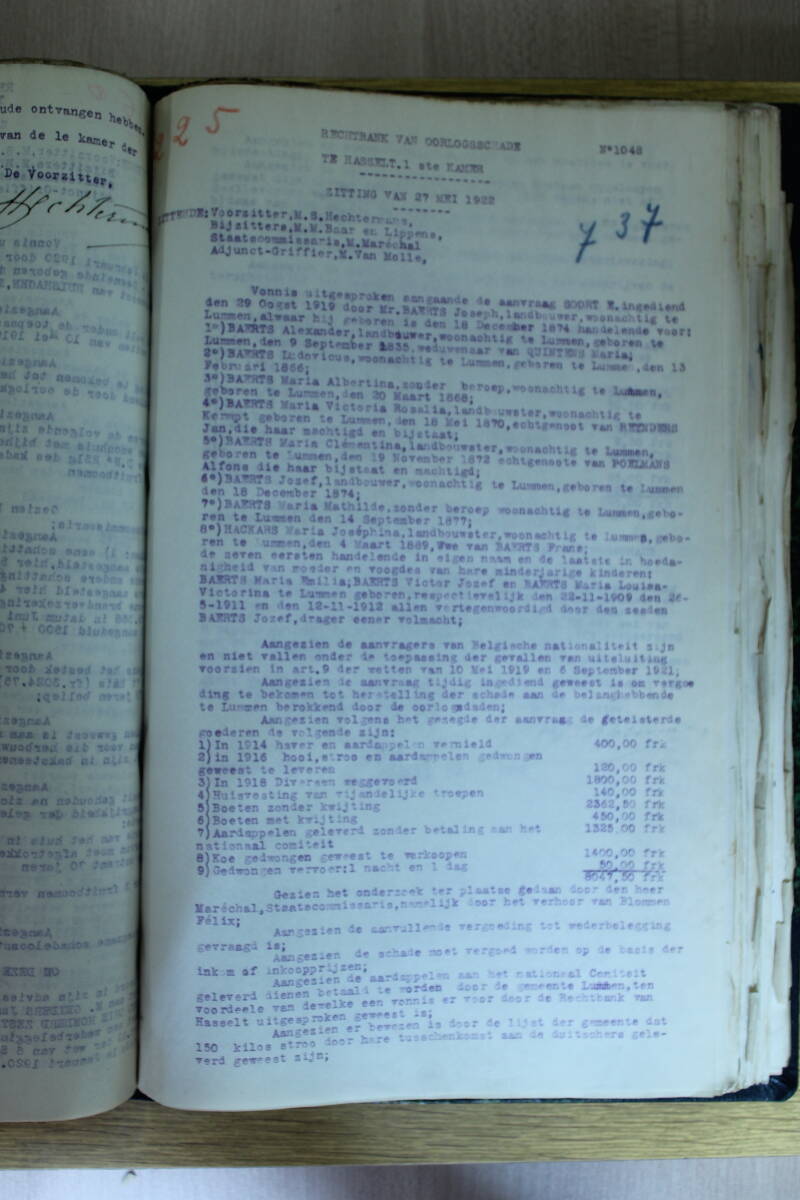 ude ontvangen hebben.
van de 1e kamer der
De Voorzitter,
Hechterm
225
RECHTBANK VAN OORLOGSSCHADE N°1048
TE HASSELT.1 ste KAMER
ZITTING VAN 27 MEI 1922
737
ZITTENDE:Voorzitter,M.S.Hechtermans,
Bijzitters,M.M.Baar en Lippens,
Staatscommissaris,M.Maréchal
Adjunct-Griffier,M.Van Molle,
Vonnis uitgesproken aangaande de aanvraag SOORT E,ingediend
den 29 Oogst 1919 door Mr.BAERTS Joseph,landbouwer,woonachtig te
Lummen,alwaar hij geboren is den 18 December 1874 handelende voor:
1°)BAERTS Alexander,landbouwer,woonachtig te Lummen,geboren te
Lummen,den 9 September 1835,weduwenaar van QUINTENS Maria;
2°)BAERTS Ludovicus,woonachtig te Lummen,geboren te Lummen,den 13
Februari 1866;
3°)BAERTS Maria Albertina,zonder beroep,woonachtig te Lummen,
geboren te Lummen,den 20 Maart 1868;
4°)BAERTS Maria Victoria Rosalia,landbouwster,woonachtig te
Kermpt geboren te Lummen,den 18 Mei 1870,echtgenoot van REYNDERS
Jan,die haar machtigd en bijstaat;
5°)BAERTS Maria Clementina,landbouwster,woonachtig te Lummen,
geboren te Lummen,den 19 November 1872 echtgenoote van POELMANS
Alfons die haar bijstaat en machtigd;
6°)BAERTS Jozef,landbouwer,woonachtig te Lummen,geboren te Lummen
den 18 December 1874;
7°)BAERTS Maria Mathilde,zonder beroep woonachtig te Lummen,gebo-
ren te Lummen den 14 September 1877;
8°)HACKARS Maria Joséphina,landbouwster,woonachtig te Lummen,gebo-
ren te Lummen,den 4 Maart 1889,Wwe van BAERTS Frans;
de zeven eersten handelende in eigen naam en de laatste in hoeda-
nigheid van moeder en voogdes van hare minderjarige kinderen:
BAERTS Maria Emilia;BAERTS Victor Jozef en BAERTS Maria Louisa-
Victorina te Lummen geboren,respectievelijk den 22-11-1909 den 26-
5-1911 en den 12-11-1912 allen vertegenwoordigd door den zesden
BAERTS Jozef,drager eener volmacht;
Aangezien de aanvragers van Belgische nationaliteit zijn
en niet vallen onder de toepassing der gevallen van uitsluiting
voorzien in art.9 der wetten van 10 Mei 1919 en 6 September 1921;
Aangezien de aanvraag tijdig ingediend geweest is om vergoe
ding te bekomen tot herstelling der schade aan de belanghebbende
te Lummen berokkend door de oorlogsdaden;
Aangezien volgens het gezegde der aanvraag de geteisterde
goederen de volgende zijn:
1)In 1914 haver en aardappelen vernield 400,00 frk
2)in 1916 hooi,stroo en aardappelen gedwongen
geweest te leveren 120,00 frk
3)In 1918 Diversen weggevoerd 1800,00 frk
4)Huisvesting van vijandelijke troepen 140,00 frk
5)Boeten zonder kwijting 2362,50 frk
6)Boeten met kwijting 450,00 frk
7)Aardappelen geleverd zonder betaling aan het 1325,00 frk
nationaal comiteit
8)Koe gedwongen geweest te verkoopen 1400,00 frk
9)Gedwongen vervoer:1 nacht en 1 dag 50,00 frk
8047,50 frk
Gezien het onderzoek ter plaatse gedaan door den heer
Maréchal,Staatscommissaris,namelijk door het verhoor van Blommen
Félix;
Aangezien de aanvullende vergoeding tot wederbelegging
gevraagd is;
Aangezien de schade moet vergoed worden op de basis der
inkom of inkoopprijzen;
Aangezien de aardappelen aan het nationaal Comiteit
geleverd dienen betaald te worden door de gemeente Lummen,ten
voordeele van dewelke een vonnis er voor door de Rechtbank van
Hasselt uitgesproken geweest is;
Aangezien er bewezen is door de lijst der gemeente dat
150 kilos stroo door hare tusschenkomst aan de duitschers gele-
verd geweest zijn;